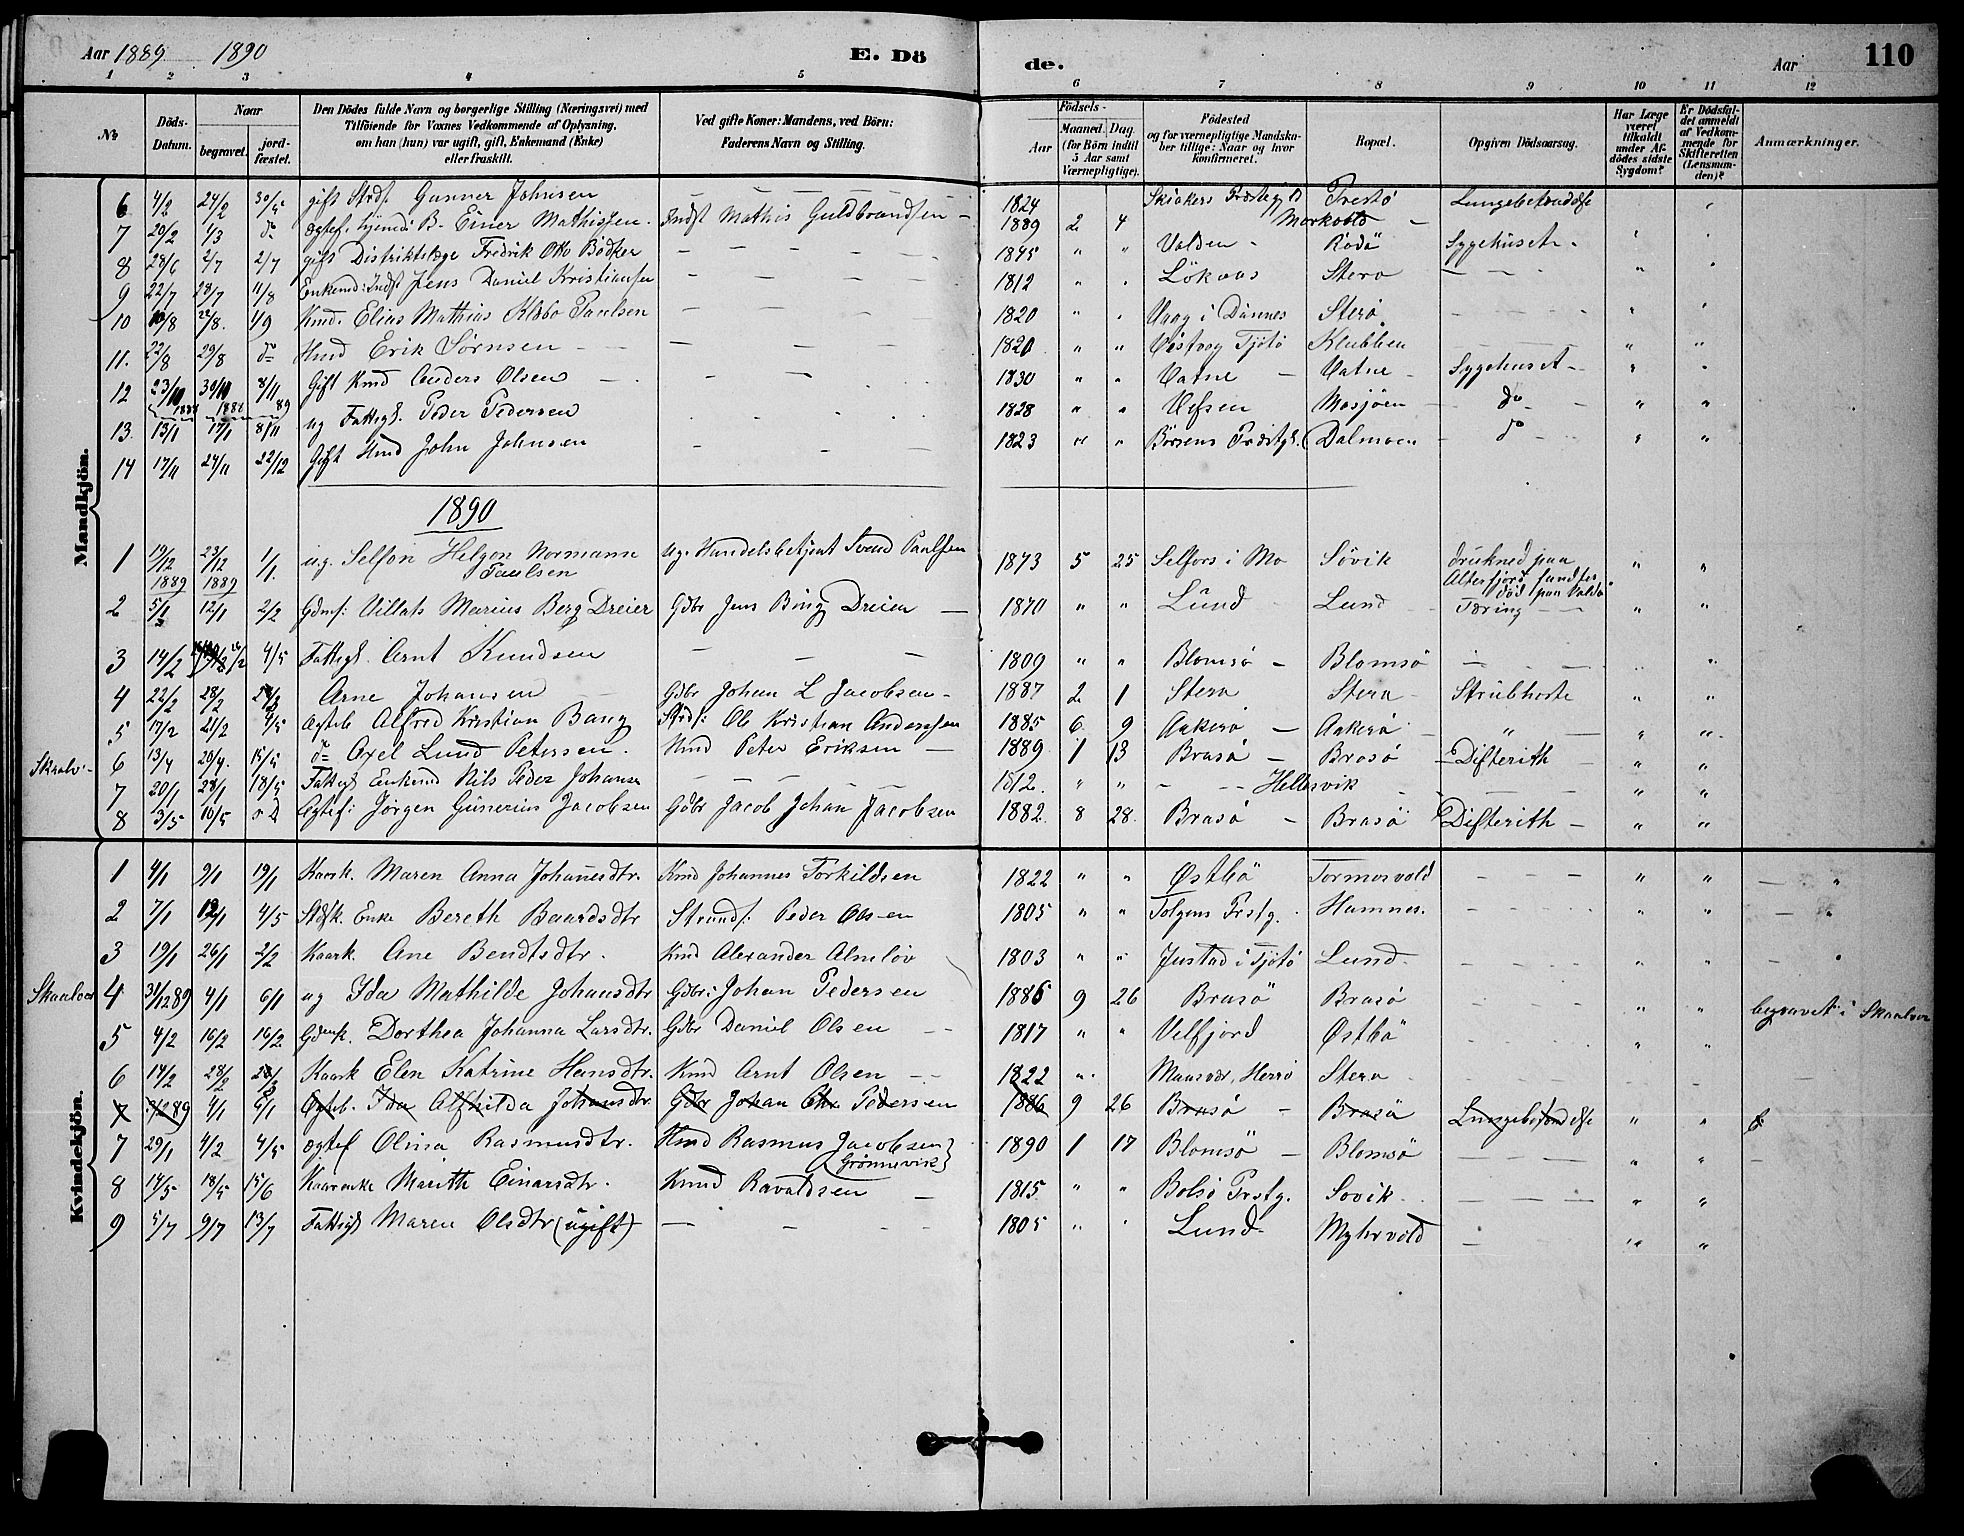 Aar 1889 1890 E. Dö de. Aar 110
1 2 3 4 5 6 7 8 9 10 11 12
No. Döds-Datum. Naar begravet. jord-fæstet. Den Dödes fulde Navn og borgerlige Stilling (Næringsvei) med Tilföiende for Voxnes Vedkommende af Oplysning, om han (hun) var ugift, gift, Enkemand (Enke) eller fraskilt. Ved gifte Koner: Mandens, ved Börn: Faderens Navn og Stilling. Födsels- Aar Maaned. Dag (for Börn indtil 5 Aar samt Værnepligtige). Födested og for værnepligtige Mandskaber tillige: Naar og hvor Konfirmeret. Bopæl. Opgiven Dödsaarsag. Har Læge været tilkaldt under Afdödes sidste Sygdom? Er Dödsfaldet anmeldt af Vedkommende for Skifteretten (Lensmanden)? Anmærkninger.
Mandkjön.
6 4/2 24/2 30/5 gift Strds. Gunner Johnsen — — 1824 Skiakers Præstegjd Trestö Lungebetændelse
7 20/2 4/3 do Ægtef. B. Einer Mathissen. Indst Mathis Guldbrandsen 1889 2 4 Markvold —
8 28/6 2/7 2/7 gift Distriktslæge Fredrik Otto Bödker — — 1845 " " Valden - Rödö Sygehuset -
9 22/7 28/7 11/8 Enkemd: Indst Jens Daniel Kristiansen — 1812 " " Lökaas Stero — —
10 10/8 22/8. 1/9 Kmd. Elias Mathias Klæbo Paulsen — 1820 " " Vaag i Dönnes Sterö - - -
11. 22/8 29/8 do Hmd Erik Sörnsen — — 1820 " " Vistvog Tjötö Klubben
12 23/10 30/10 8/11 Gift Kmd Anders Olsen — — 1830 " " Vatne — Vatne - Sygehuset -
13. 13/1 1888 17/1 1888 8/11 89 ug Fattigl. Peder Pedersen 1828 " " Vefsen Mosjöen - do
14 17/11 24/11 22/12 Gift Hmd John Johnsen 1823 " " Börsens Præstgl. Dalmoen - do
1890
1 19/12 1889 23/12 1889 1/1. ug. Selfon Helgon Normann Paulsen Ug. Handelsbetjent Svend Paulsen 1873 5 25 Selfors i Mo Sövik drukned paa Alterfjord funden död paa Valdö
2 5/1 12/1 2/2 Gdms: Villats Marius Berg Dreier Gdbr Jens Bing Dreier — 1870 " " Lund Lund Tæring - -
3 14/2 26/2 4/5 Fattigl. Arnt Knudsen — — 1809 " " Blomsö - Blomsö
4 22/2 28/2 Arne Johansen Gdbr Johan L Jacobsen - 1887 2 1 Stera Stera - Strubhoste
5 17/2 21/2 4/5 Ægteb Alfred Kristian Bang Strds: Ole Kristian Anderssen 1885 6 9 Aakerö — Aakerö - "
Skaalv- 6 13/4 20/4. 15/5 do Axel Lund Petersen. Kmd Peter Eriksen — 1889 1 13 Brasö - Brosö - Difterith -
7 20/1 28/1 18/5 Fattigl Enkemd Nils Peder Johansen — — 1812. " " - - Hellesvik
8 3/5 10/5 Ægtef: Jörgen Gunerius Jacobsen Gdbr Jacob Johan Jacobsen 1882 8 28. Brasö - Brasö Difterith -
Kvindekjön.
1 4/1 9/1 19/1 Kaark. Maren Anna Johanesdtr. Kmd Johannes Torkildsen 1822 " " Østbö Tormosvold - - -
2 7/1 12/1 4/5 Stdsk. Enke Bereth Baardsdtr Strands: Peder Olsen 1805 " " Tolgens Prstg. Hamnes.
3 19/1 26/1 2/2 Kaark. Ane Bendtsdtr. Kmd Alexander Almlöv 1803 " " Justad i Tjötö Lund
Skaalvær 4 31/12 89 4/1 6/1 ug Ida Mathilde Johansdtr Gdbr: Johan Pedersen 1886 9 26 Brasö Brasö begravet i Skaalvær
5 4/2 16/2 16/2 Gdenk. Dorthea Johanna Larsdtr. Gdbr Daniel Olsen - - 1817 " " Velfjord Østbö
6 14/2 28/2 Kaark Elen Katrine Hansdtr. Kmd Arnt Olsen - - 1822 " Maasvær, Herrö Stera
7 31/12 89 4/1 6/1 Ægteb. Ida Alfhilda Johansdtr Gdbr Johan Chr Pedersen 1886 9 26 Brasö - Brasö Lungebetændelse
7 29/1 4/2 4/5 Ægtef Olina Rasmusdtr. Kmd Rasmus Jacobsen (Grönnevik) 1890 1 17 Blomsö — Blomsö
8 14/5 18/5 15/6 Kaarenke Marith Einarsdtr. Kmd Ravaldsen — 1815 " " Bolsö Prstg. Sovik -
9 5/7 9/7 13/7 Fattigl Maren Olsdtr (ugift) — - - 1805 " " Lund Myhrvold —